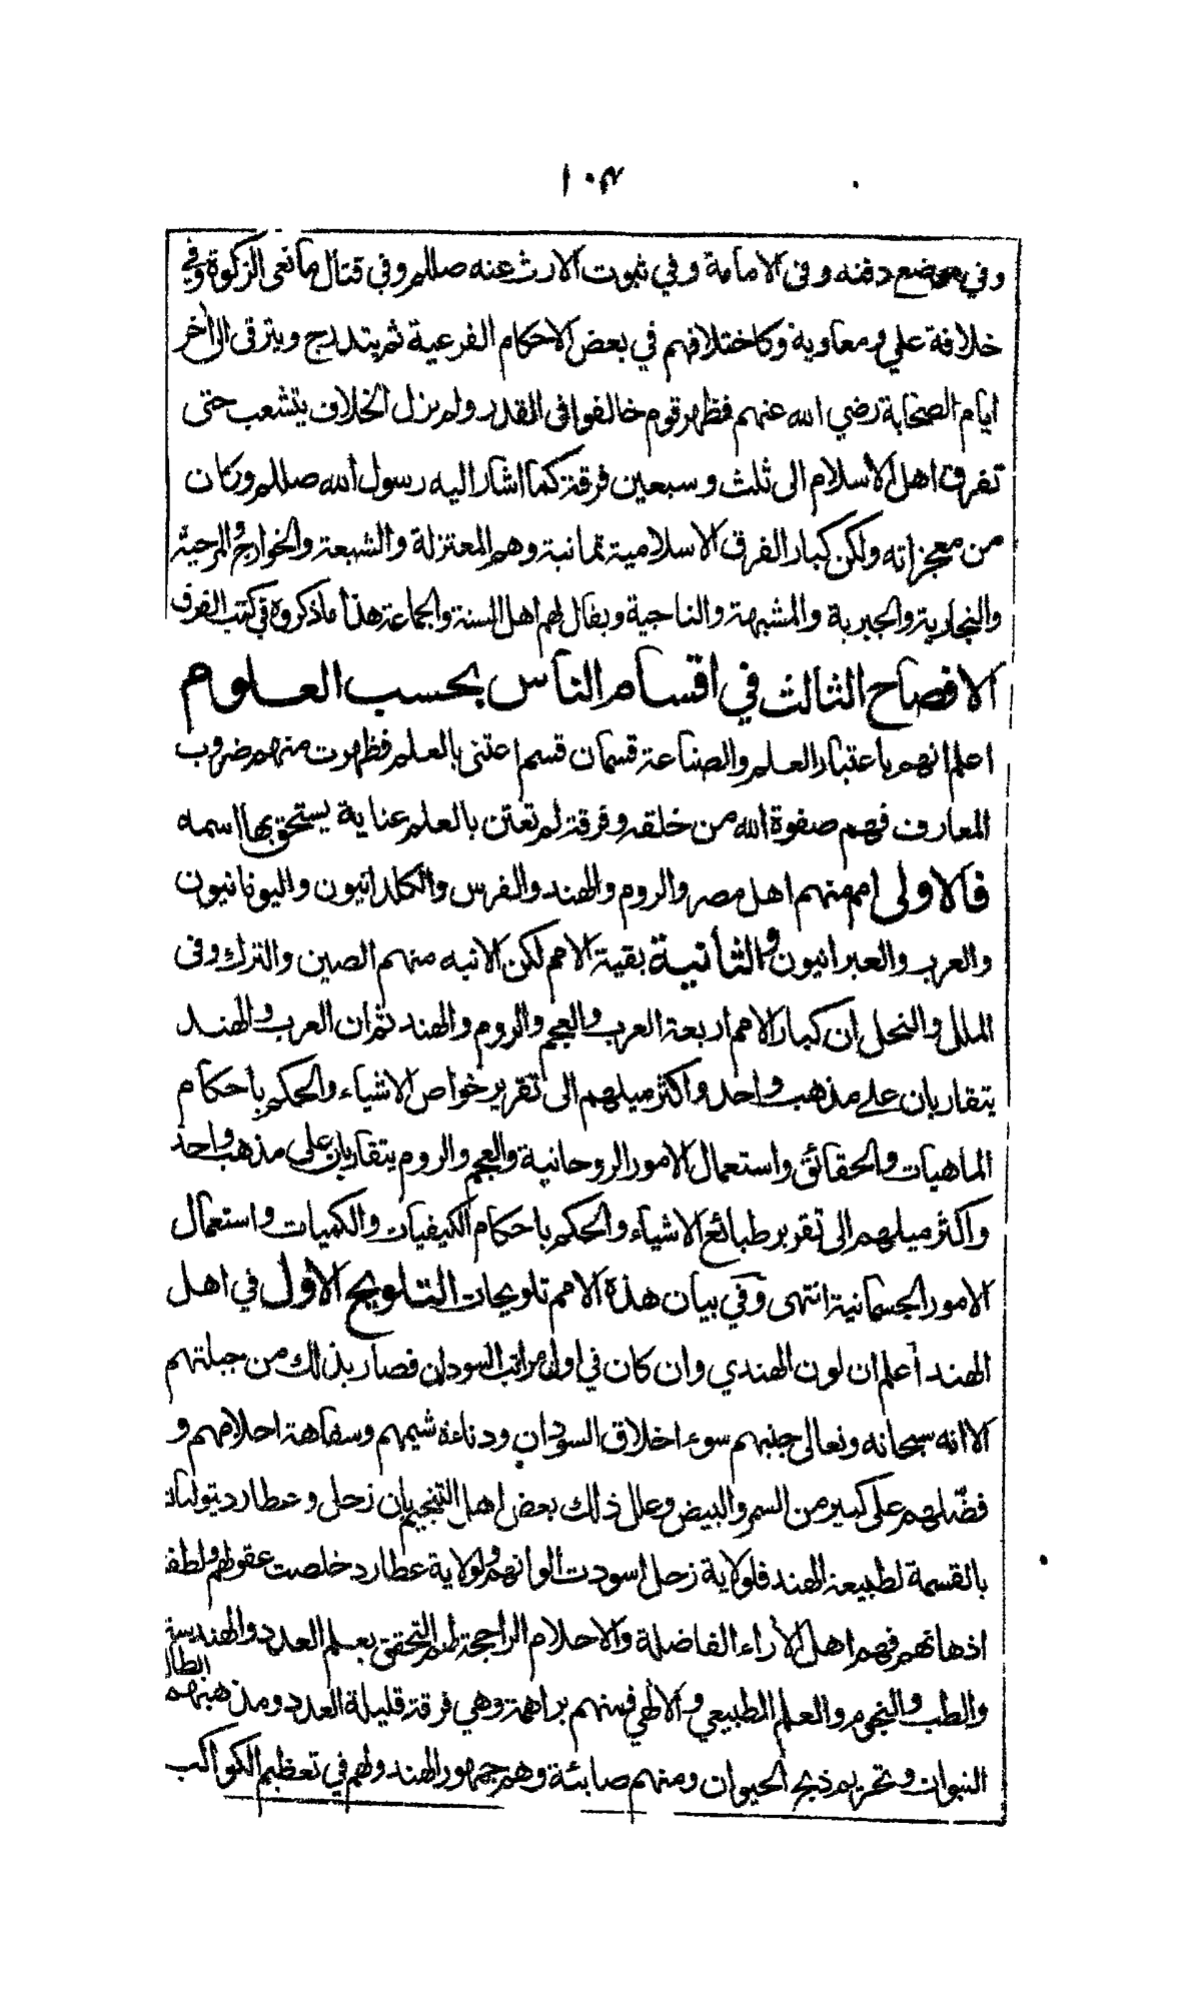 ١٠٣
وفي موضع دفنه وفى الامامة وفي ثبوت الارث عنه صللم وفي قتال مانعى الزكوة وفي
خلافة علي ومعاوية وكاختلافهم في بعض الاحكام الفرعية ثم يتدرج ويترقى الى اخر
ايام الصحابة رضي الله عنهم فظهر قوم خالفوا فى القدر ولم يزل الخلاف يتشعب حتى
تفرق اهل الاسلام الى ثلث وسبعين فرقة كما اشار اليه رسول الله صللم وكان
من معجزاته ولكن كبار الفرق الاسلامية ثمانية وهم المعتزلة والشيعة والخوارج والمرجئة
والنجارية والجبرية والمشبهة والناجية ويقال لهم اهل السنة والجماعة هذا ما ذكروه في كتب الفرق
الافصاح الثالث في اقسام الناس بحسب العلوم
اعلم انهم باعتبار العلم والصناعة قسمان قسم اعتنى بالعلم فظهرت منهم ضروب
المعارف فهم صفوة الله من خلقه وفرقة لم تعتن بالعلم عناية يستحق بها اسمه
فالاولى امم منهم اهل مصر والروم والهند والفرس والكلدانيون واليونانيون
والعرب والعبرانيون والثانية بقية الامم لكن الانبه منهم الصين والترك وفى
الملل والنحل ان كبار الامم اربعة العرب والعجم والروم والهند ثم ان العرب والهند
يتقاربان على مذهب واحد واكثر ميلهم الى تقرير خواص الاشياء والحكم باحكام
الماهيات والحقائق واستعمال الامور الروحانية والعجم والروم يتقاربان على مذهب واحد
واكثر ميلهم الى تقرير طبائع الاشياء والحكم باحكام الكيفيات والكميات واستعمال
الامور الجسمانية انتهى وفي بيان هذه الامم تلويحات التلويح الاول في اهل
الهند اعلم ان لون الهندي وان كان في اول مراتب السودان فصار بذلك من جبلتهم
الا انه سبحانه وتعالى جنبهم سوء اخلاق السودان ودناءة شيمهم وسفاهة احلامهم و
فضّلهم على كثير من السمر والبيض وعلل ذلك بعض اهل التنجيم بان زحل وعطارد يتوليان
بالقسمة لطبيعة الهند فلولاية زحل اسودت الوانهم ولولاية عطارد خلصت عقولهم ولطفت
اذهانهم فهم اهل الآراء الفاضلة والاحلام الراجحة لهم التحقق بعلم العدد والهندسة
والطب والنجوم والعلم الطبيعي والالهي فمنهم براهمة وهي فرقة قليلة العدد ومذهبهم ابطال
النبوات وتحريم ذبح الحيوان ومنهم صابئة وهم جمهور الهند ولهم في تعظيم الكواكب